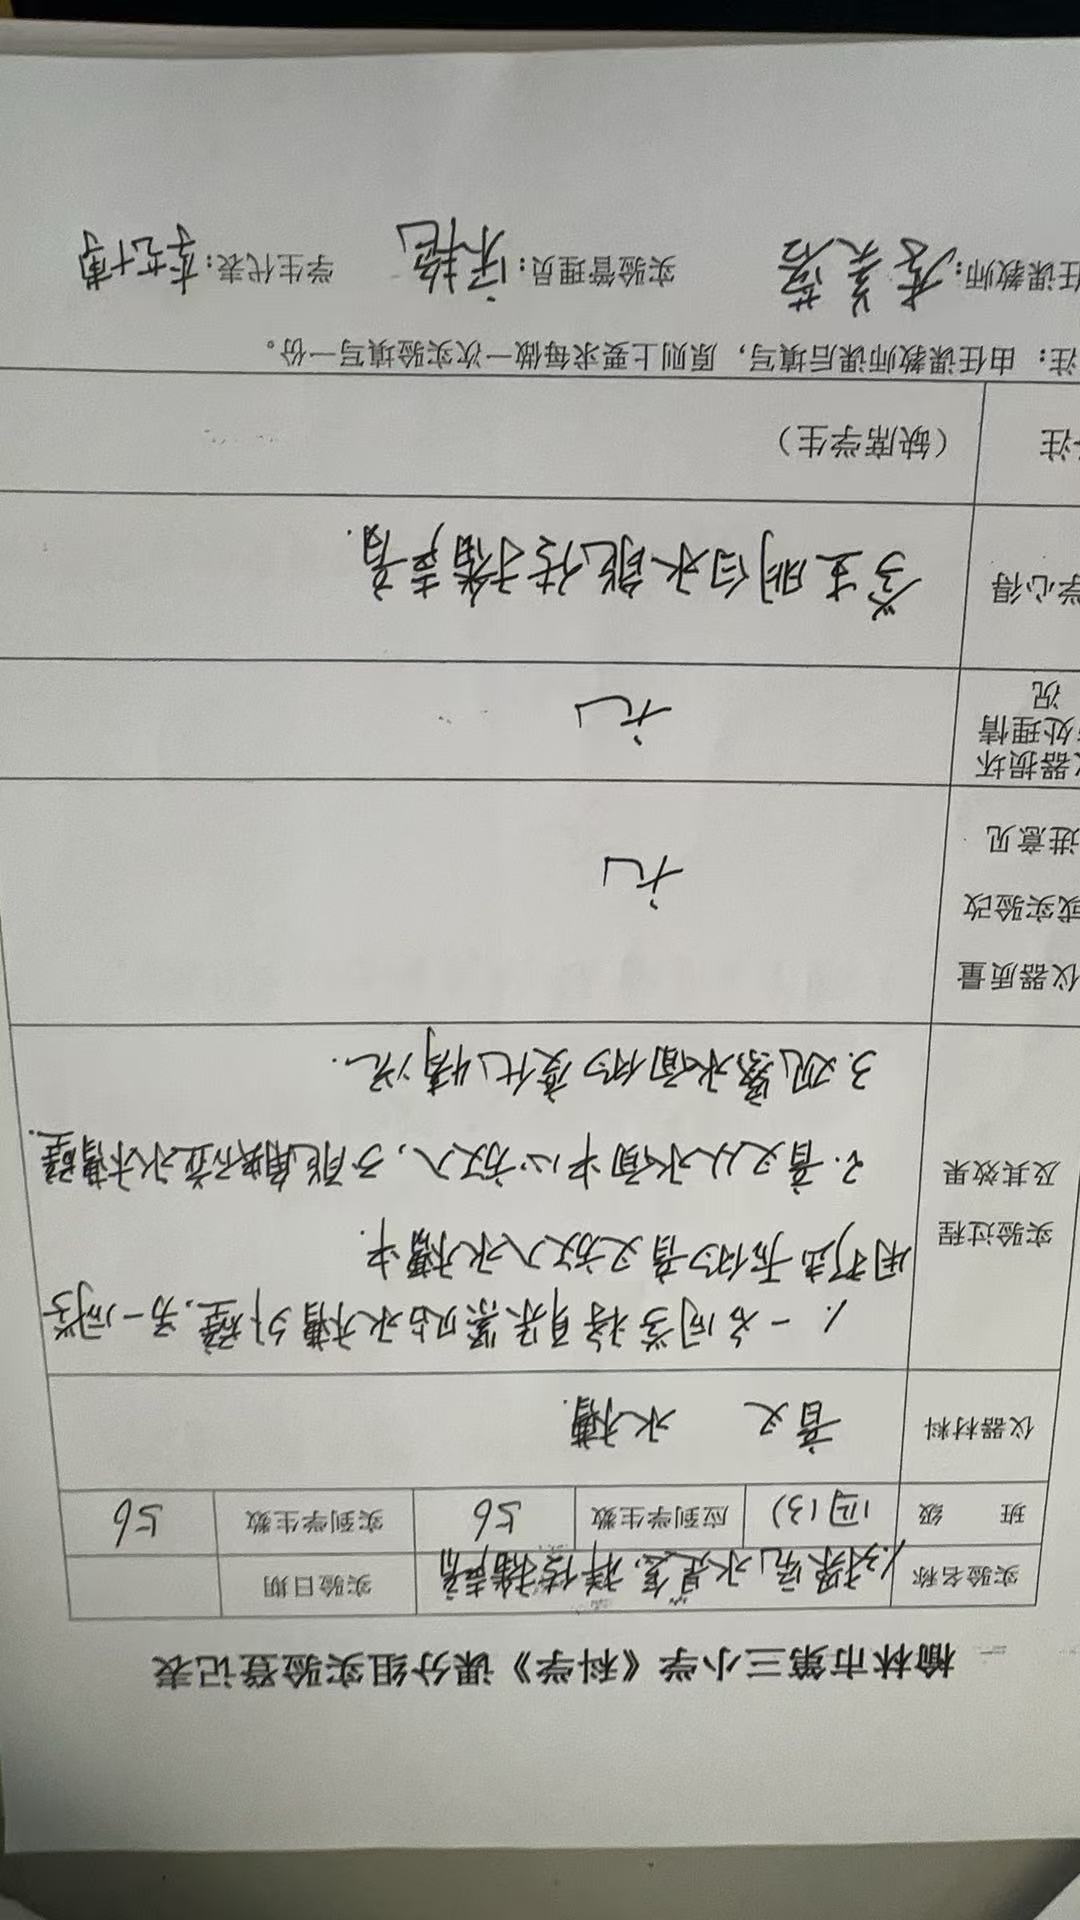 榆林市第三小学《科学》课分组实验登记表
实验名称 探究水是怎样传播声音 实验日期
班 级 四(3) 应到学生数 56 实到学生数 56
仪器材料 音叉 水槽.
实验过程
及其效果
1. 一名同学将耳朵紧贴水槽外壁,另一同学
用敲击有的音叉放入水槽中.
2. 音叉从水面中心放入,不能触碰立水槽壁.
3. 观察水面的变化情况.
仪器质量
或实验改
进意见
无
器损坏
处理情
况
无
学心得 学生明白水能传播声音.
注 (缺席学生)
注:由任课教师课后填写,原则上要求每做一次实验填写一份。
任课教师: 实验管理员: 学生代表: